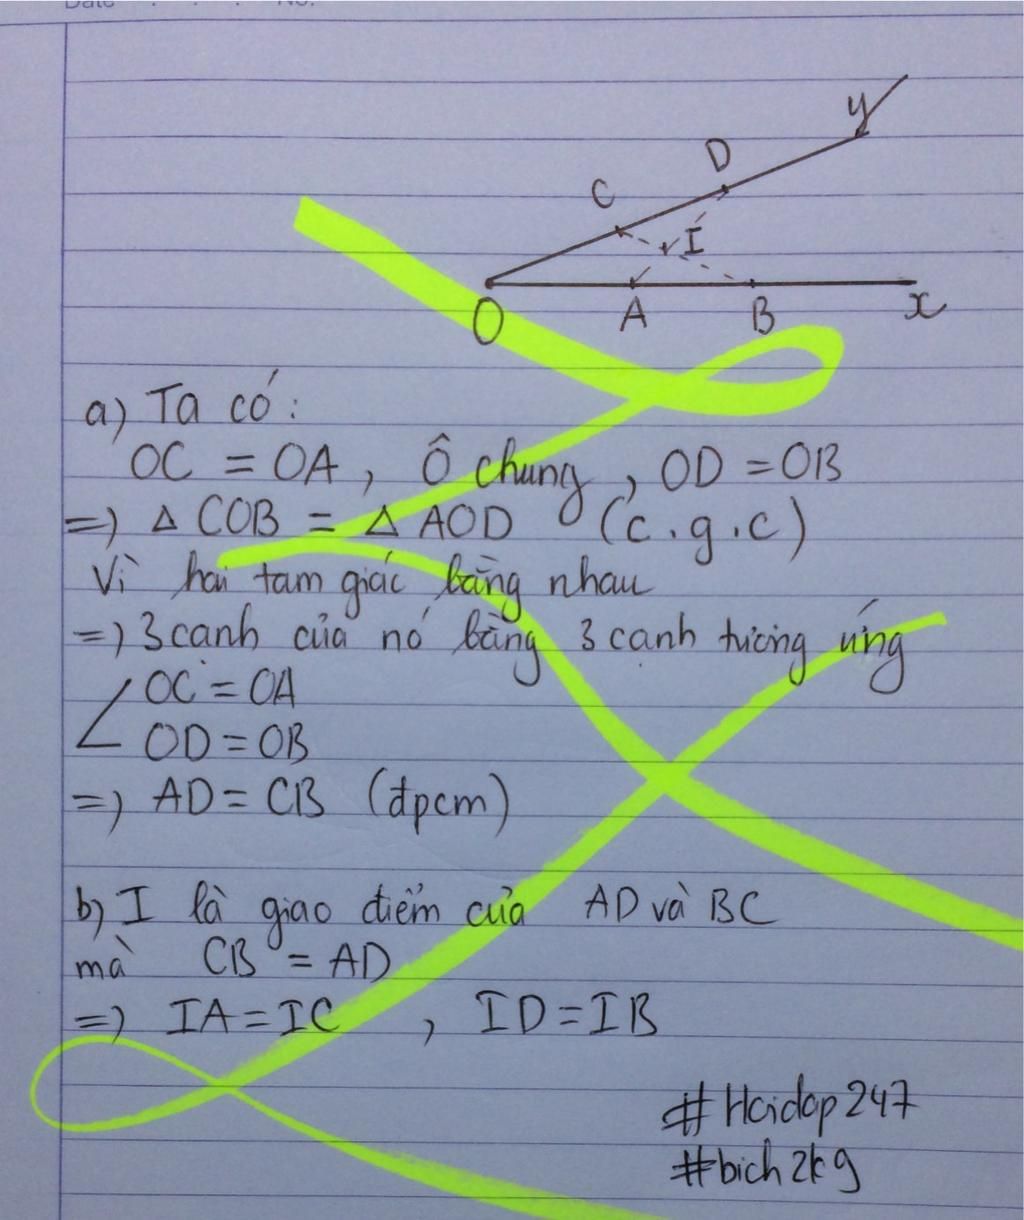 Date No.
y
D
C
I
O A B x
a) Ta có:
OC = OA, Ô chung, OD = OB
=) △ COB = △ AOD (c.g.c)
Vì hai tam giác bằng nhau
=) 3 cạnh của nó bằng 3 cạnh tương ứng
OC = OA
OD = OB
=) AD = CB (đpcm)
b) I là giao điểm của AD và BC
mà CB = AD
=) IA = IC , ID = IB
#Hoidap247
#bich2k9